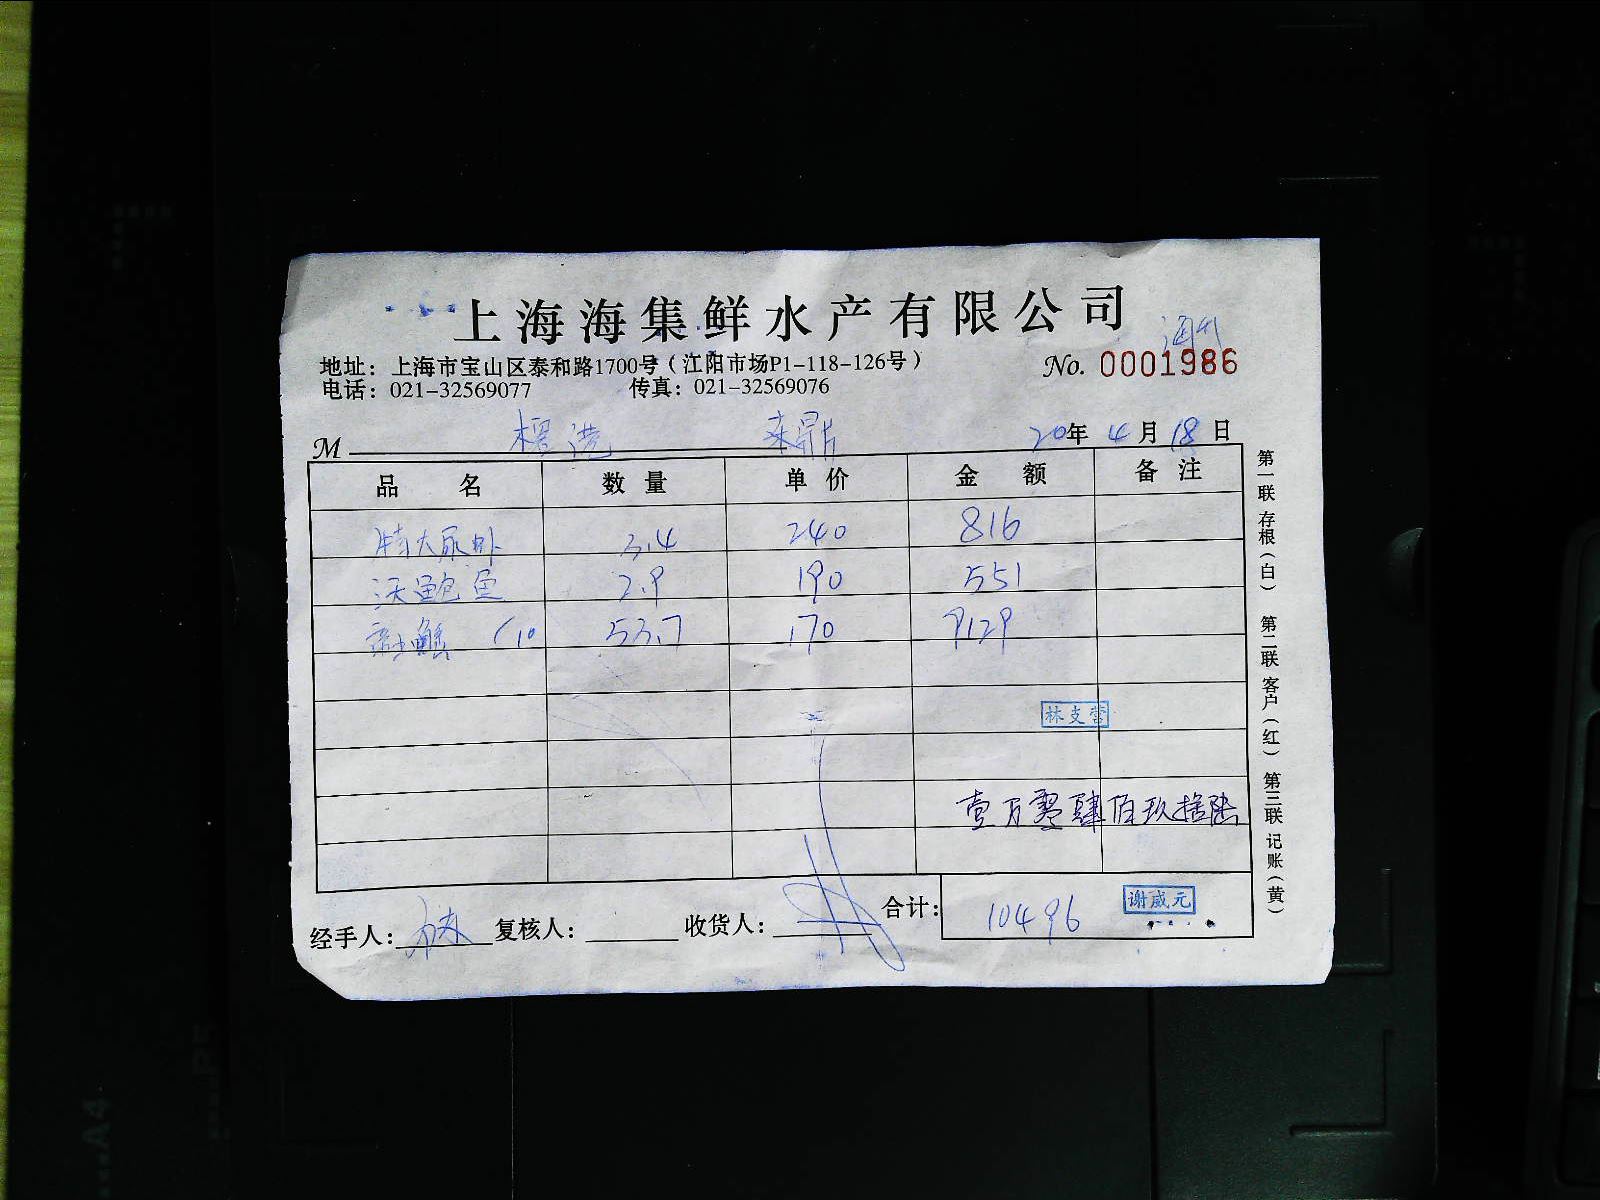 上海海集鲜水产有限公司
地址：上海市宝山区泰和路1700号（江阳市场P1-118-126号）
No. 0001986
电话：021-32569077 传真：021-32569076
M 20年 4月 18日
品名 数量 单价 金额 备注
特大尿虾 3.4 240 816
沃鲍鱼 2.9 190 551
蟹 53.7 170 9129
林支营
壹万零肆佰玖拾陆
经手人： 复核人： 收货人： 合计：10496
谢威元
第一联 存根（白） 第二联 客户（红） 第三联 记账（黄）